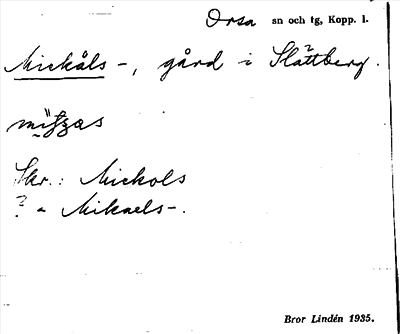 Orsa sn och tg, Kopp. l.
Mickåls -, gård i Slättberg.
Skr.: Mickols
? = Mikaels -.
Bror Lindén 1935.